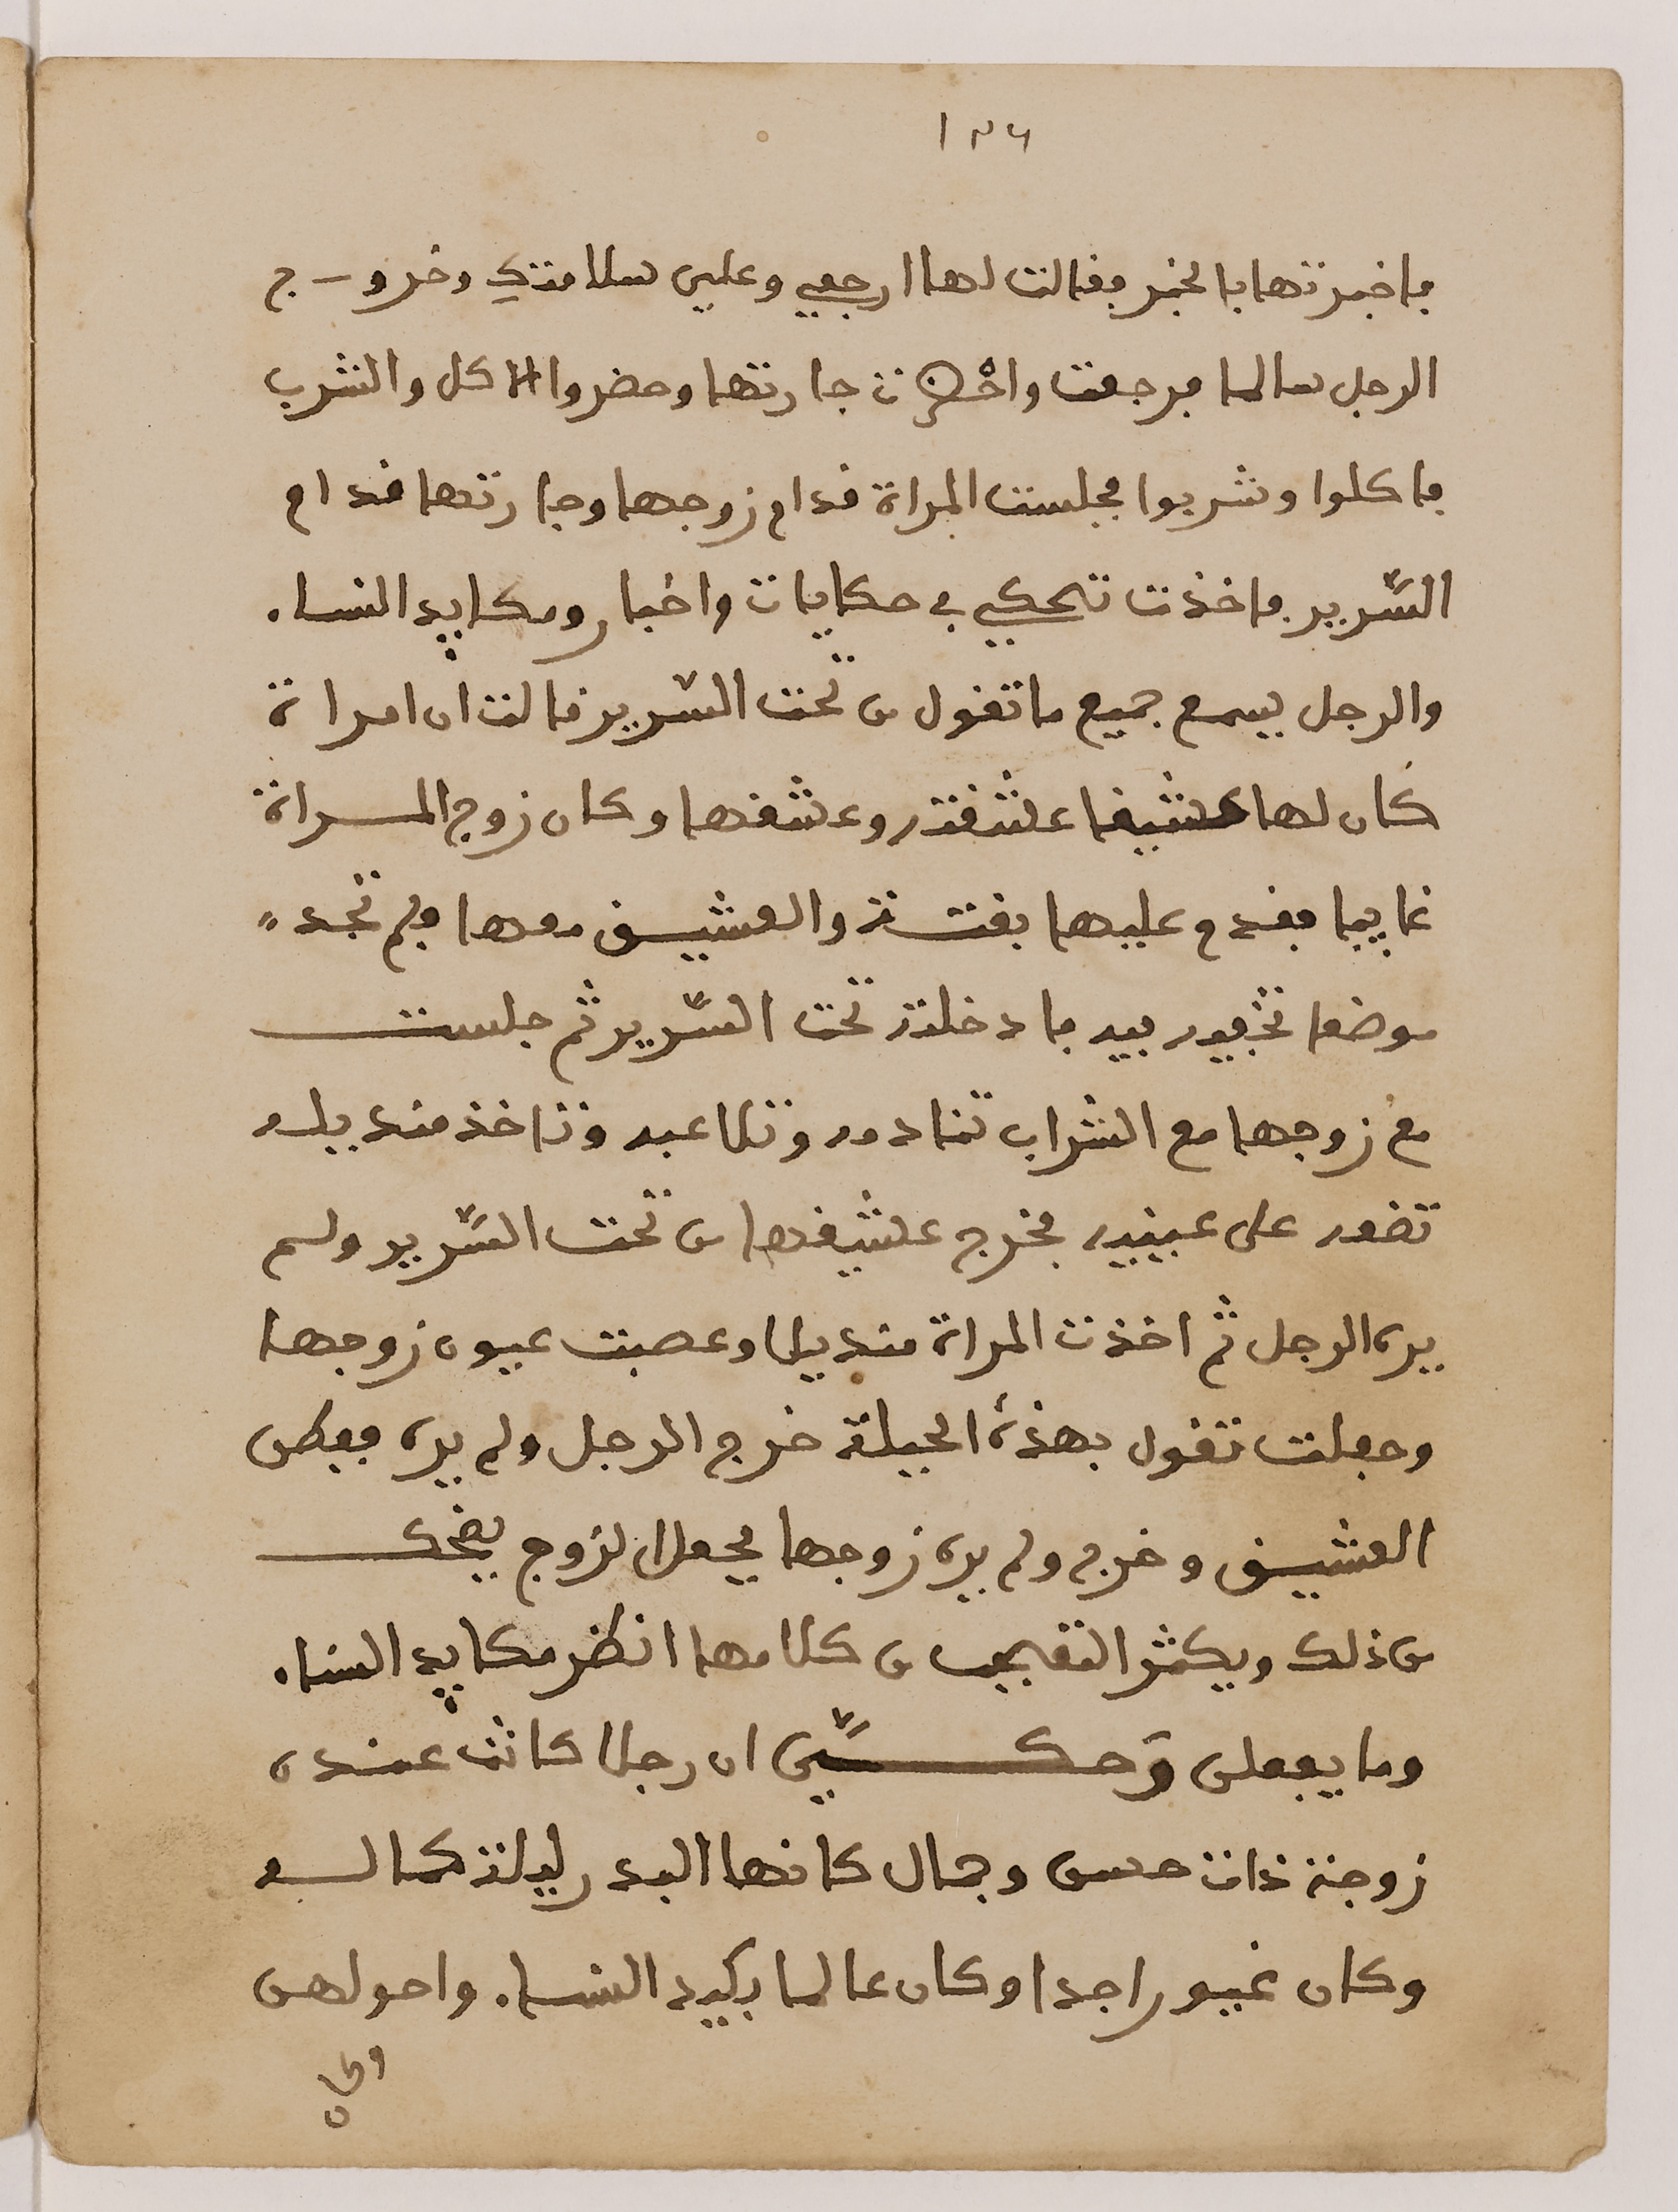 ١٣٦
فاخبرتها بالخبر فقالت لها ارجعي وعلي سلامتك وخروج
الرجل سالما فرجعت واحضرت جارتها وحضروا الاكل والشرب
فاكلوا وشربوا فجلست المراة قدام زوجها وجارتها قدام
السّرير فاخذت تحكي في حكايات واخبار ومكايد النساء
والرجل يسمع جميع ما تقول من تحت السّرير قالت ان امراة
كان لها عشيقا عشقته وعشقها وكان زوج المراة
غايبا فقدم عليها بغتة والعشيق معها فلم تجد
موضعا تخبيه فيه فادخلته تحت السّرير ثم جلست
مع زوجها مع الشراب تنادمه وتلاعبه وتاخذ منديله
تضعه على عينيه فخرج عشيقها من تحت السّرير ولم
يره الرجل ثم اخذت المراة منديلا وعصبت عيون زوجها
وجعلت تقول بهذه الحيلة خرج الرجل ولم يره ففطن
العشيق وخرج ولم يره زوجها فجعل الزوج يضحك
من ذلك ويكثر التعجب من كلامها انظر مكايد النساء
وما يفعلن وَحكّيَ ان رجلا كانت عنده
زوجة ذات حسن وجمال كانها البدر ليلة كماله
وكان غيورا جدا وكان عالما بكيد النساء واحولهن
وكان